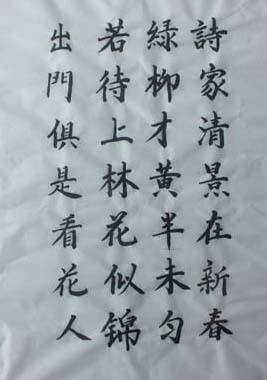 詩家清景在新春
綠柳才黃半未勻
若待上林花似錦
出門俱是看花人